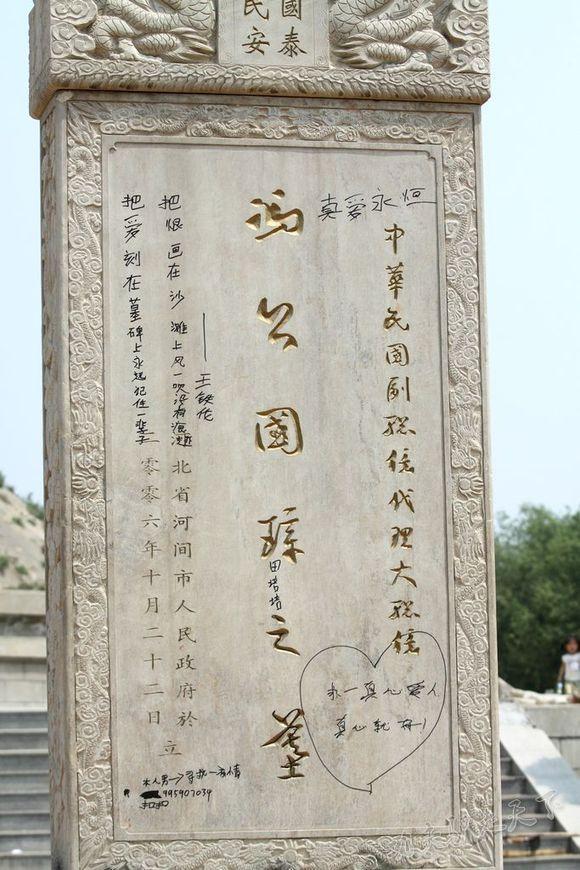 國泰
民安
真爱永恒
中華民國副總統代理大總統
馮公國璋之墓
田培培
求一真心爱人
真心就
把恨画在沙滩上风一吹没有痕迹
把爱刻在墓碑上永远记住一辈子
北省河间市人民政府於
二零零六年十月二十二日 立
本人男一>寻找一有情
995907039
扣扣